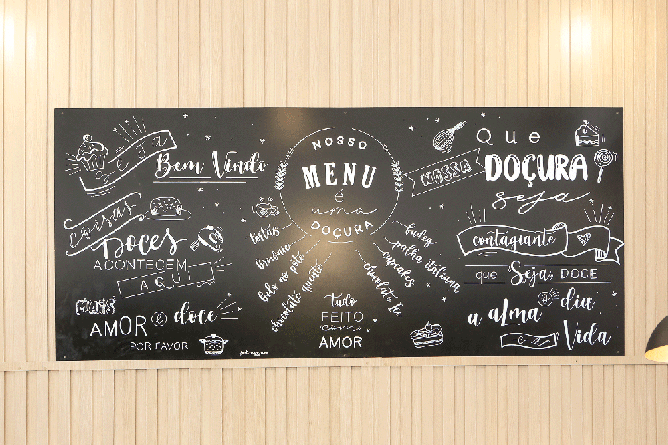 Seja
Bem Vindo
Coisas
Doces
ACONTECEM
AQUI
MAIS
AMOR e doce
POR FAVOR
NOSSO
MENU
é
uma
DOÇURA
tortas
brownie
bolo no pote
chocolate quente
fudge
palha italiana
cupcakes
chocolate
Tudo
FEITO
com
AMOR
Que
NOSSA DOÇURA
seja
contagiante
que Seja DOCE
a alma o dia
e a Vida